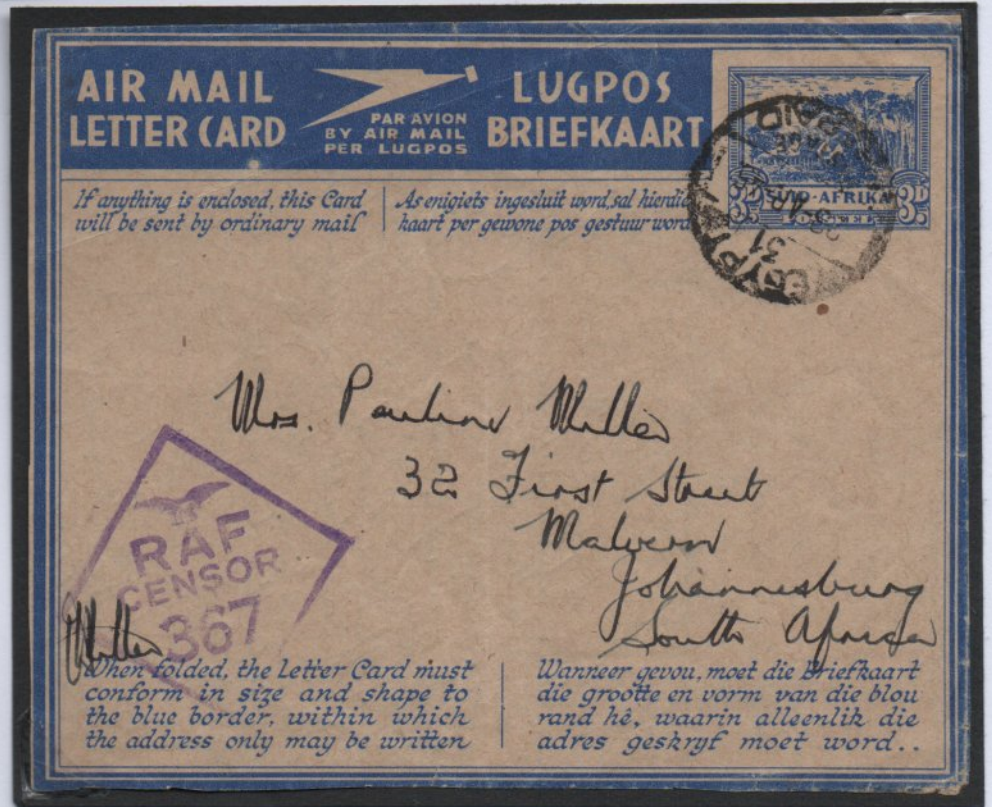 AIR MAIL
LETTER CARD
PAR AVION
BY AIR MAIL
PER LUGPOS
LUGPOS
BRIEFKAART
If anything is enclosed, this Card
will be sent by ordinary mail
As enigiets ingesluit word, sal hierdie
kaart per gewone pos gestuur word
-AFRIKA
3D 3D
EGYPT
31
PAID
Mrs. Pauline Miller
32 First Street
Malvern
Johannesburg
South Africa
RAF
CENSOR
367
Miller
When folded, the Letter Card must
conform in size and shape to
the blue border, within which
the address only may be written
Wanneer gevou, moet die Briefkaart
die grootte en vorm van die blou
rand hê, waarin alleenlik die
adres geskryf moet word..